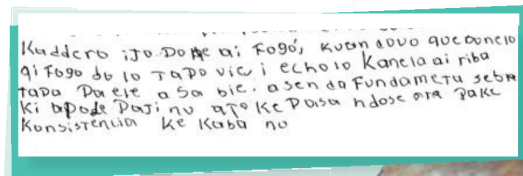 Kaddero iJO DO Pe ai FOgó, Kuan dovo que doncio
qi FOgo do lo TaPO vic, i echolo Kanela ai riba
TaPa Pa eLe a Sa bic. a sen da Fundametu sebre
Ki aPode Paji nu aTO Ke Paisa ndose ora Pake
Konsistencia Ke Kaba no